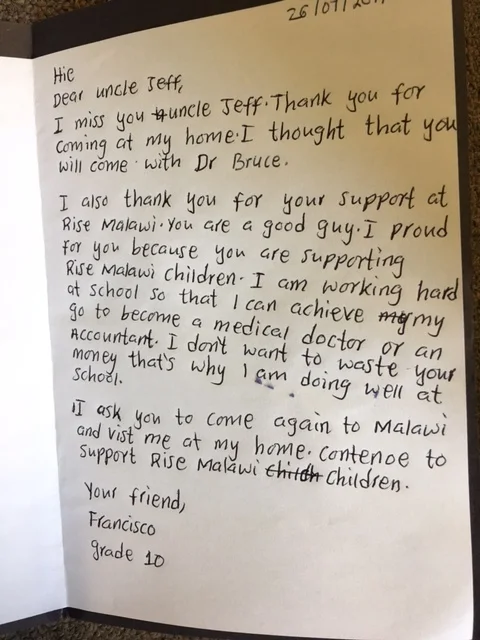 26/07/201
Hie
Dear uncle Jeff,
I miss you uncle Jeff. Thank you for
coming at my home. I thought that you
will come with Dr Bruce.
I also thank you for your support at
Rise Malawi. You are a good guy. I proud
for you because you are supporting
Rise Malawi children. I am working hard
at school so that I can achieve my my
go to become a medical doctor or an
Accountant. I don't want to waste your
money that's why I am doing well at
school.
I ask you to come again to Malawi
and vist me at my home. contenoe to
support Rise Malawi Childh Children.
Your friend,
Francisco
grade 10